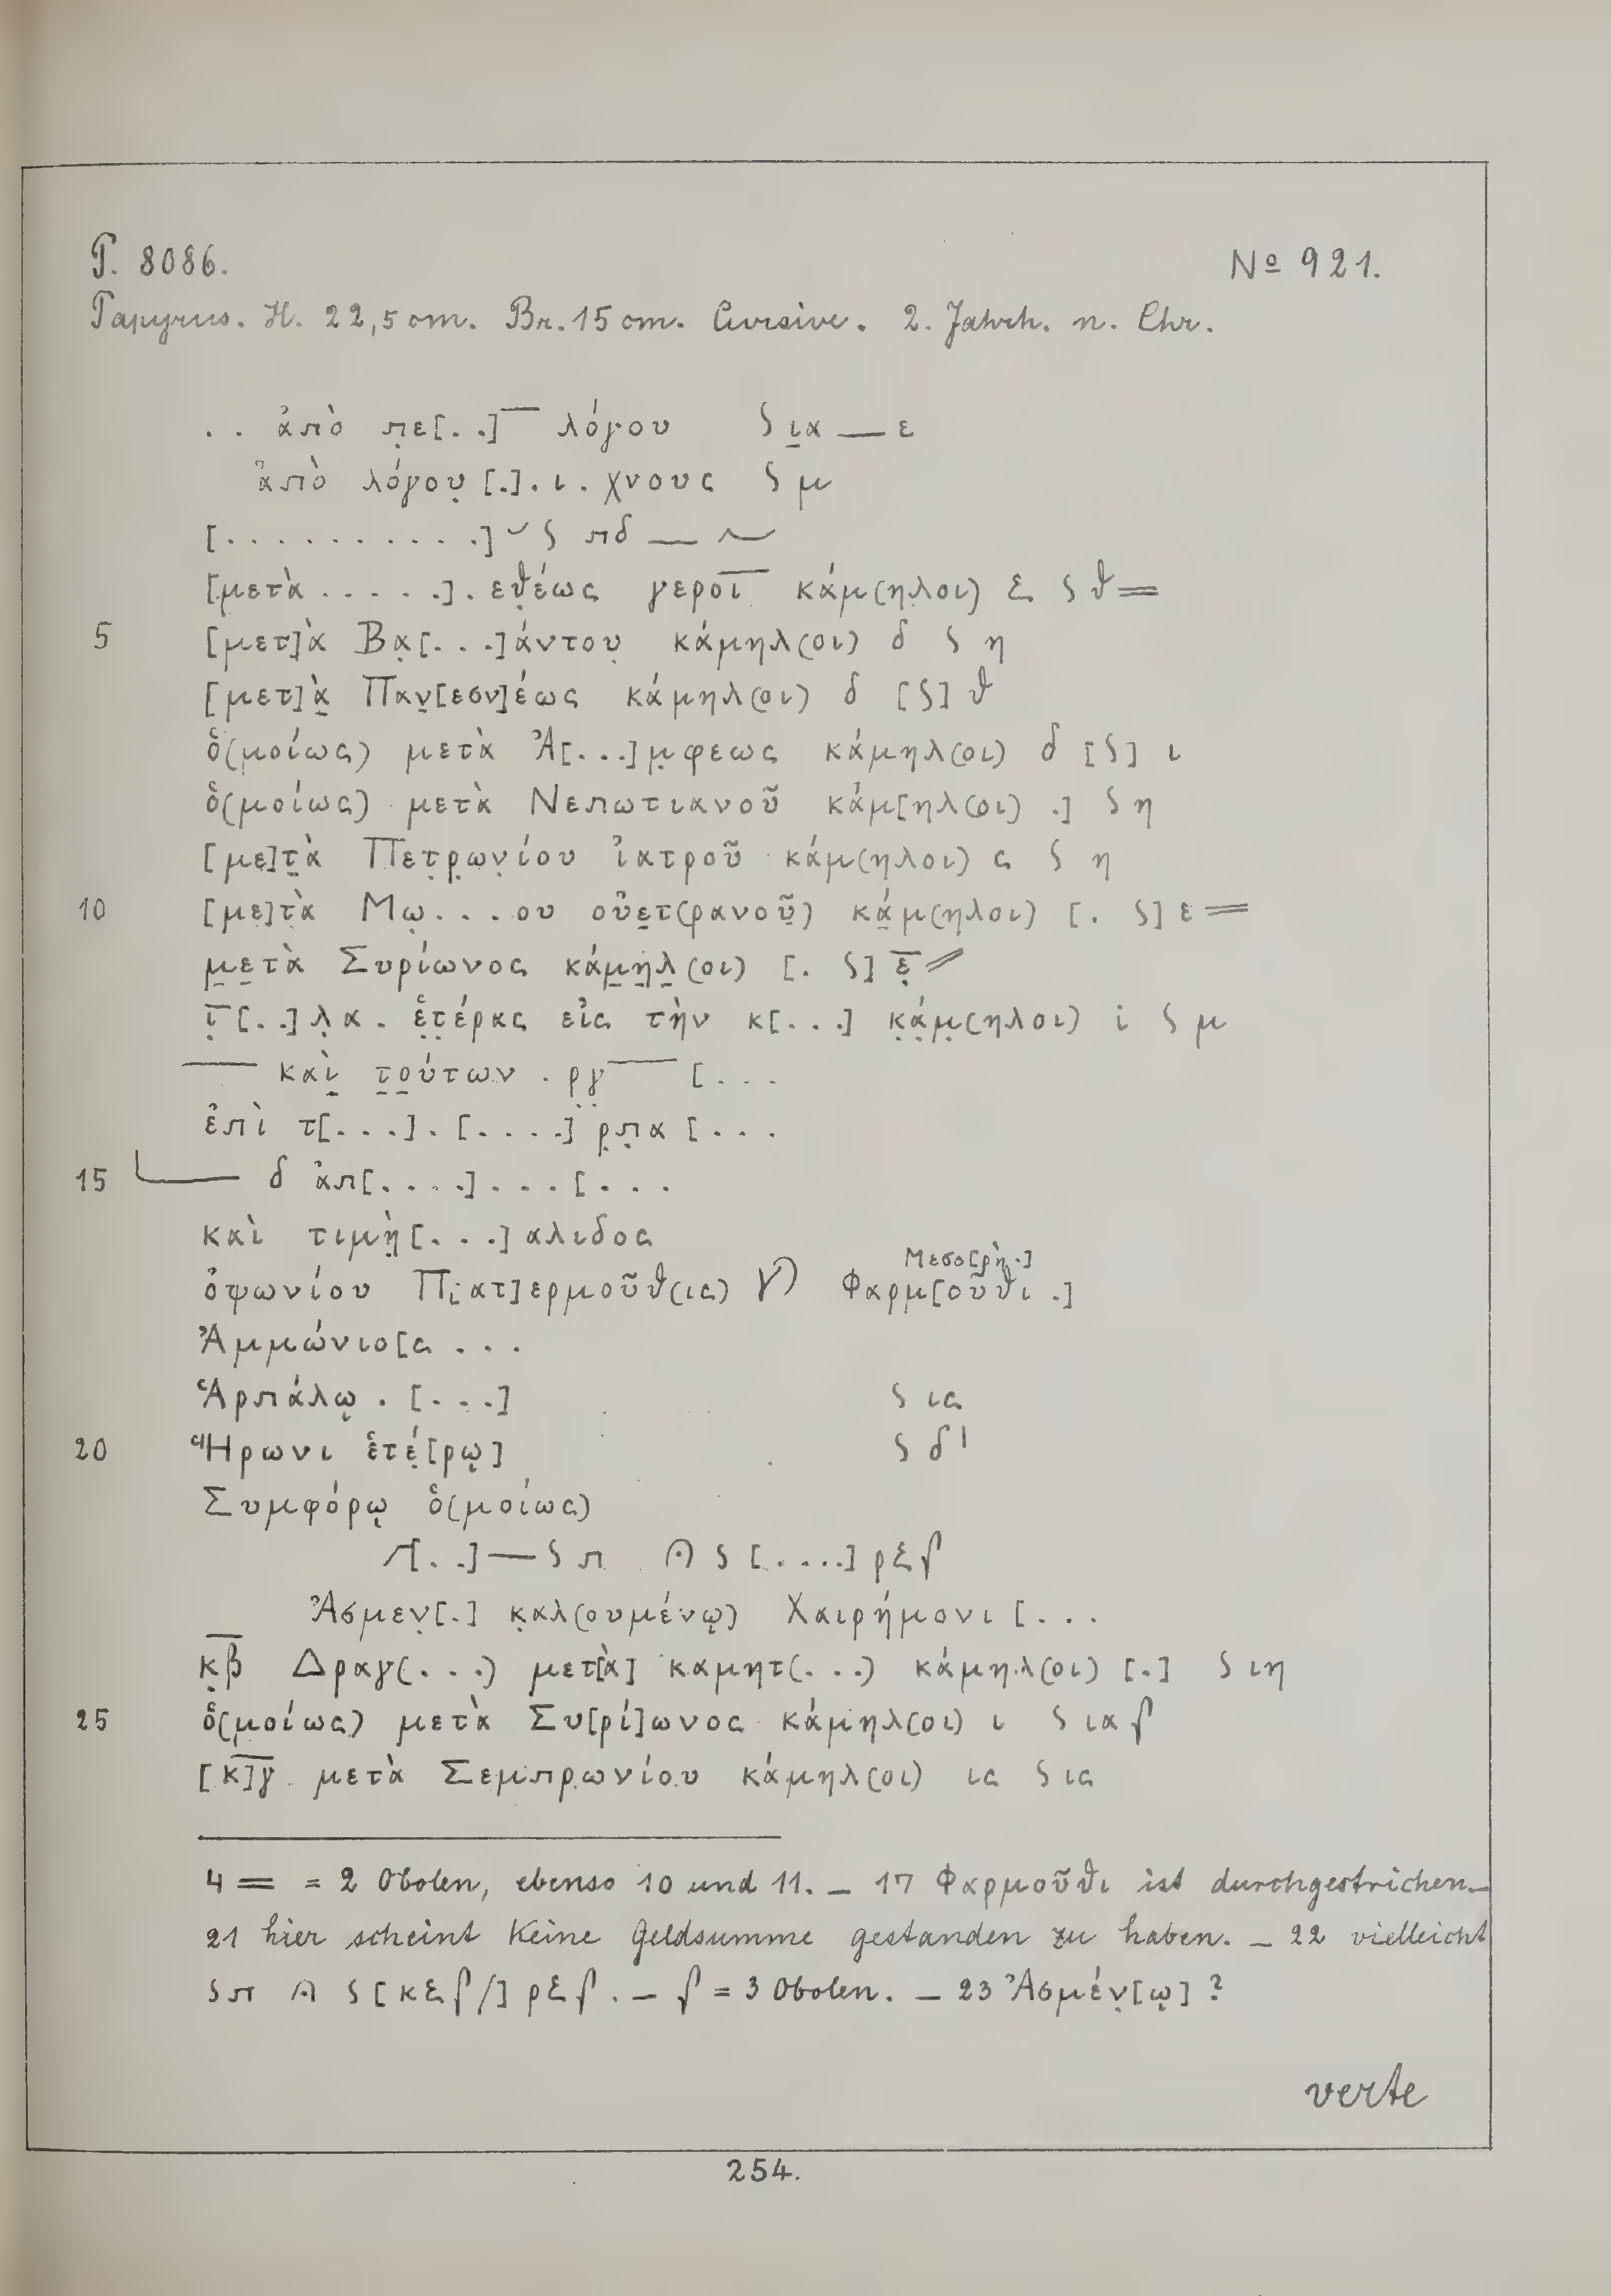 P. 8086. No 921.
Papyrus. H. 22,5 cm. Br. 15 cm. Cursive. 2. Jahrh. n. Chr.
. . ἀπὸ π̣ε[. .]‾ λόγου ς ι̣α — ε
ἀπὸ λόγου̣ [.] . ι . χνους ς μ
[. . . . . . . . . . .] ς πδ —
[μετὰ . . . . .] . εθ̣έως γεροῑ κάμ(ηλοι) ξ ς θ =
5 [μετ]ὰ Βα̣[. . .]άντου̣ κάμηλ(οι) δ ς η
[μετ]ὰ̣ Παν̣[εσν]έως κάμηλ(οι) δ [ς] θ
ὁ(μοίως) μετὰ Ἀ[. . .]μ̣φεως κάμηλ(οι) δ [ς] ι
ὁ(μοίως) μετὰ Νεπωτιανοῦ κάμ[ηλ(οι) .] ς η
[με]τ̣ὰ Πετ̣ρ̣ων̣ίου ἰατροῦ κάμ(ηλοι) ς ς η
10 [με]τ̣ὰ Μω̣ . . . . ου οὐε̣τ(ρανοῦ̣) κά̣μ(ηλοι) [. ς] ε =
μ̣ε̣τὰ Συρίωνος κάμ̣η̣λ̣(οι) [. ς] ε̣̄ =
ῑ̣ [. .] λ̣α . ἑ̣τ̣έρας εἰς τὴν κ[. . .] κ̣ά̣μ̣(ηλοι) ι ς μ
— καὶ̣ τ̣ο̣ύτων . ρ̣γ̣ — [. . .
ἐπὶ τ[. . .] . [. . . .] ρ̣π̣α [. . .
15 δ ἀπ[. . . .] . . . [. . .
καὶ τιμὴ̣[. . .]αλιδος
Μεσο[ρὴ .]
ὀψωνίου Π[ατ]ερμοῦθ(ις) γ) Φαρμ[οῦθι .]
Ἀμμώνιο[ς . . .
Ἁρπάλῳ . [. . .] ς ις
20 Ἥρωνι ἑτέ̣[ρῳ] ς δ'
Συμφόρῳ ὁ(μοίως)
[. .] — ς π ς [. . . .] ρξ ʃ
Ἀσμεν̣[.] κ̣αλ(ουμένῳ) Χαιρήμονι [. . .
κ̣β̄ Δραγ(. . .) μετ[ὰ] καμητ(. . .) κάμηλ(οι) [.] ς ιη
25 ὁ(μοίως) μετὰ Συ[ρί]ωνος κάμηλ(οι) ι ς ια ʃ
[κ]γ̄ μετὰ Σεμπρωνίου κάμηλ(οι) ις ς ις
4 = = 2 Obolen, ebenso 10 und 11. — 17 Φαρμοῦθι ist durchgestrichen. —
21 hier scheint keine Geldsumme gestanden zu haben. — 22 vielleicht
ς π ς [κξ ʃ /] ρξ ʃ . — ʃ = 3 Obolen. — 23 Ἀσμέν̣[ῳ] ?
verte
254.